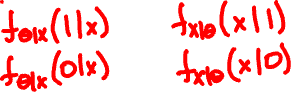 f_{Θ|X}(1|x) f_{X|Θ}(x|1)
f_{Θ|X}(0|x) f_{X|Θ}(x|0)